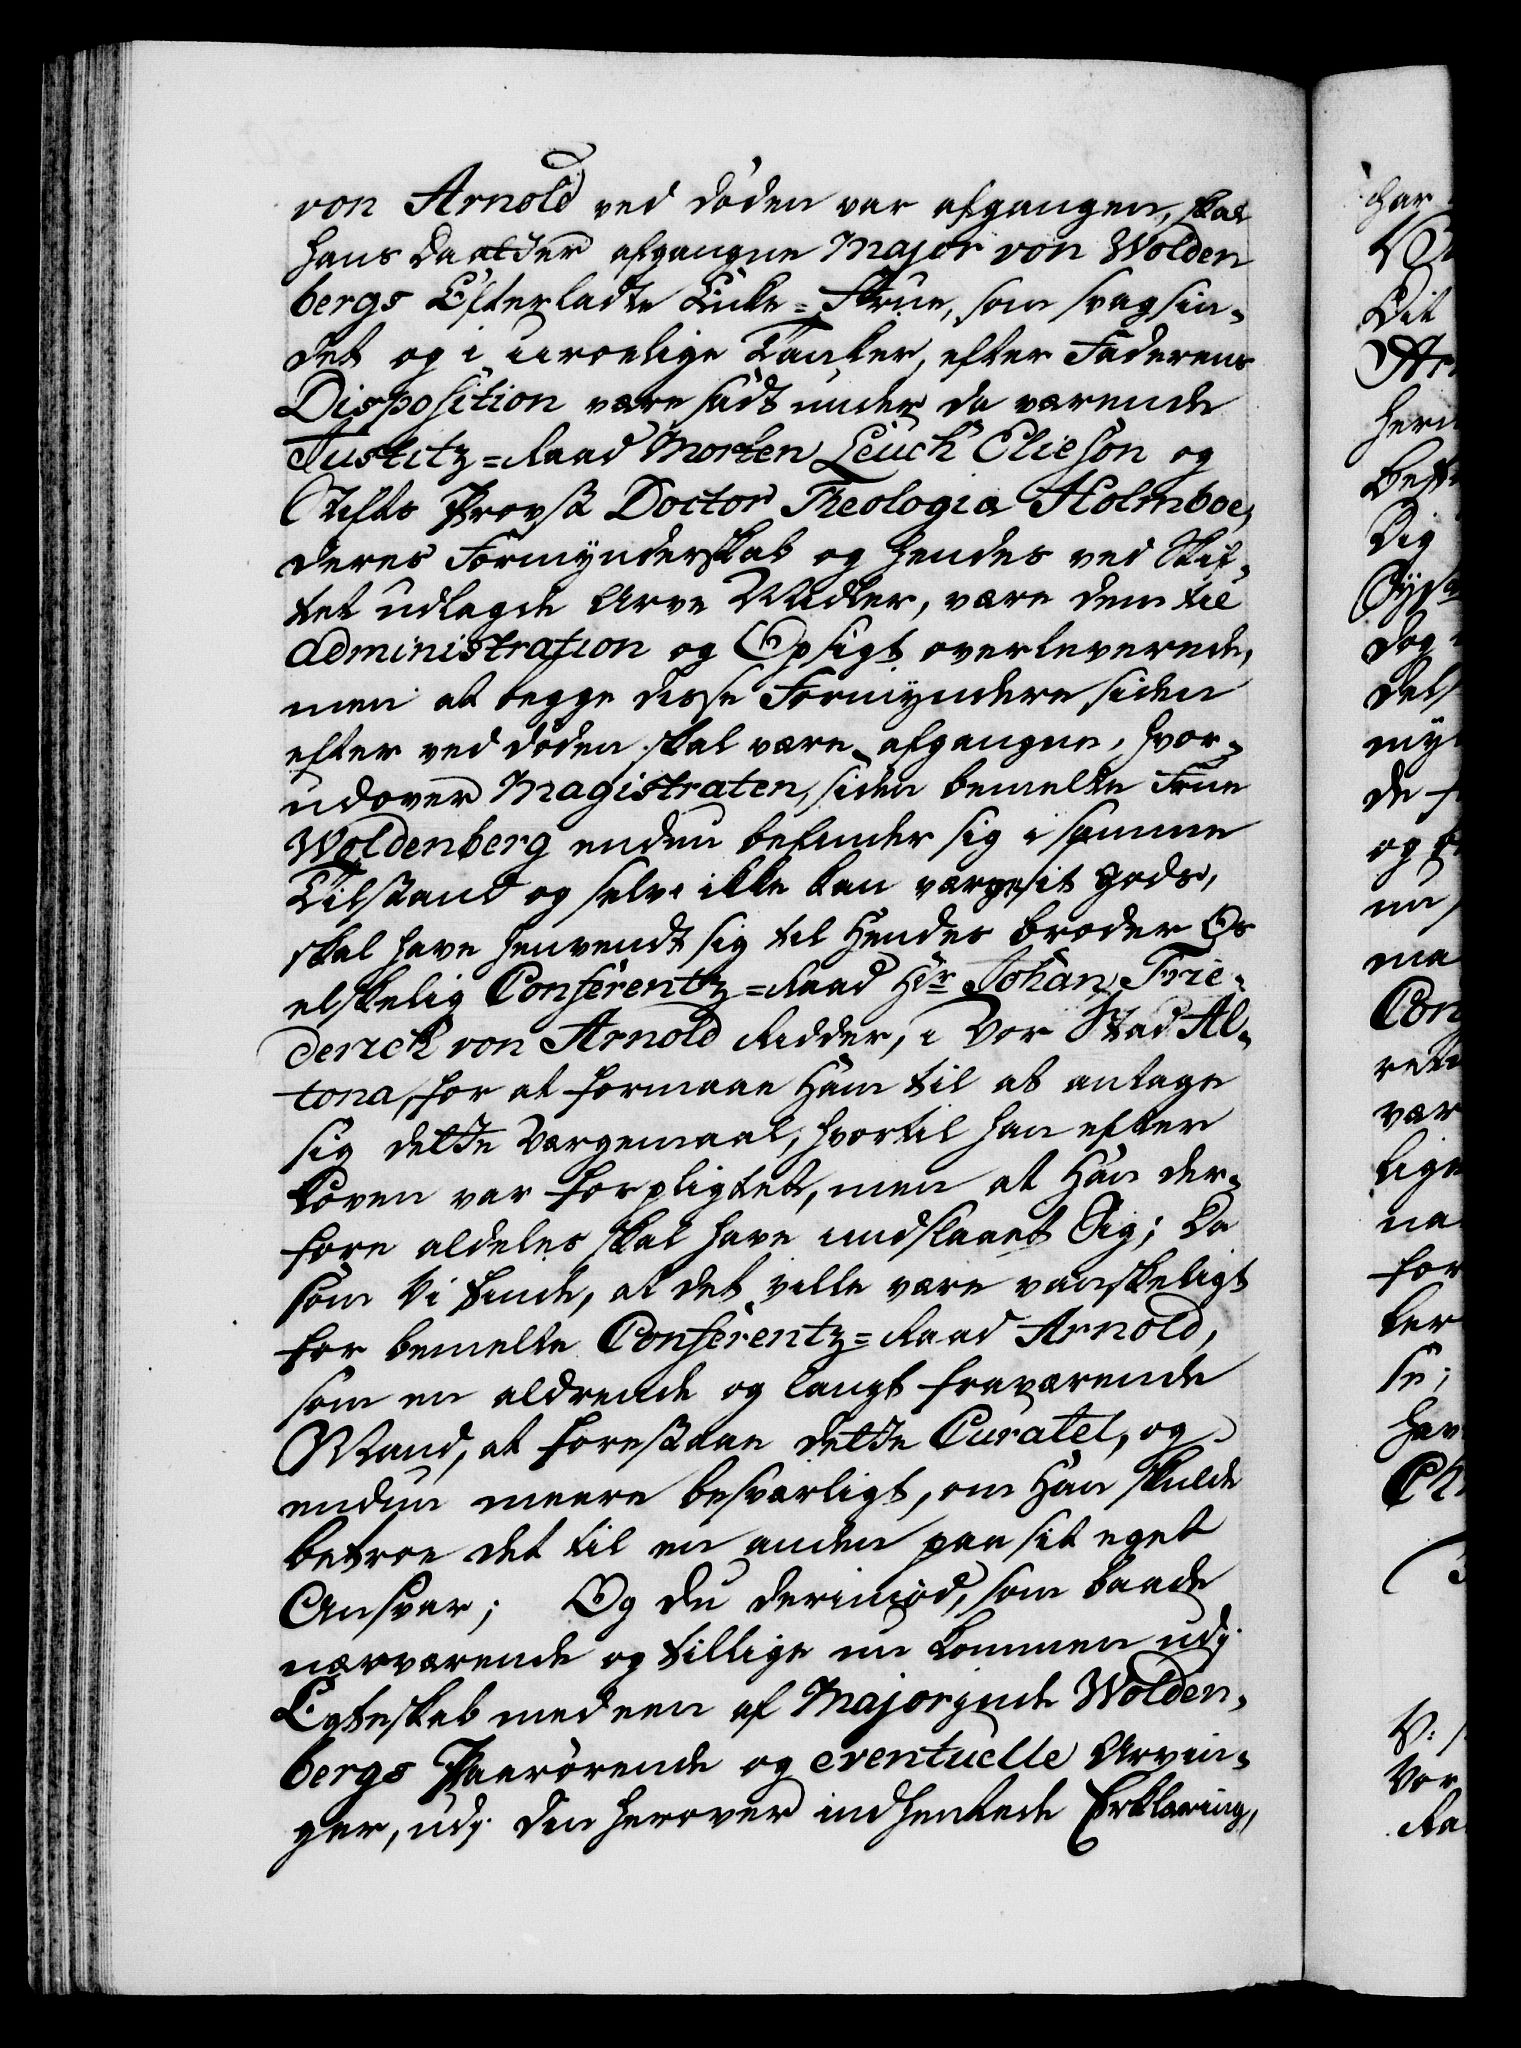 von Arnold ved døden var afgangen, skal
hans Daatter afgangne Major von Wolden
bergs Efterladte Enke=Frue, som svagsin-
det og i uroelige Tanker, efter Faderens
Disposition være sadt under da værende
Justitz=Raad Morten Leuch Elieson og
Stifts Provst Doctor Theologiæ Holmboe,
deres Formynderskab og hendes ved Skif-
tet udlagde Arve Midler, være dem til
administration og Opsigt overleverede,
men at begge disse Formyndere siden
efter ved døden skal være afgangne, hvor-
udover Magistraten, siden bemelte Frue
Woldenberg endnu befinder sig i samme
Tilstand og selv ikke kan værge sit gods,
skal have henvendt sig til Hendes broder Os
elskelig Conferentz=Raad Hr Johan Frie-
derich von Arnold Ridder, i Vor Stad Al-
tona, for at formaae Ham til at antage
sig dette Værgemaal, hvortil han efter
Loven var forpligtet, men at Han der-
fore aldeles skal have undslaaet Sig; Da
som Vi finde, at det ville være vanskeligt
for bemelte Conferentz=Raad Arnold,
som en aldrende og langt fraværende
Mand, at forestaae dette Curatel, og
endnu meere besværligt, om Han skulde
betroe det til en anden paa sit eget
Ansvar; Og du derimod, som baade
nærværende og tillige nu kommen udj
Egteskab med een af Majorinde Wolden-
bergs Paarørende og eventuelle Arvin-
ger, udj den herover indhentede Erklæring,